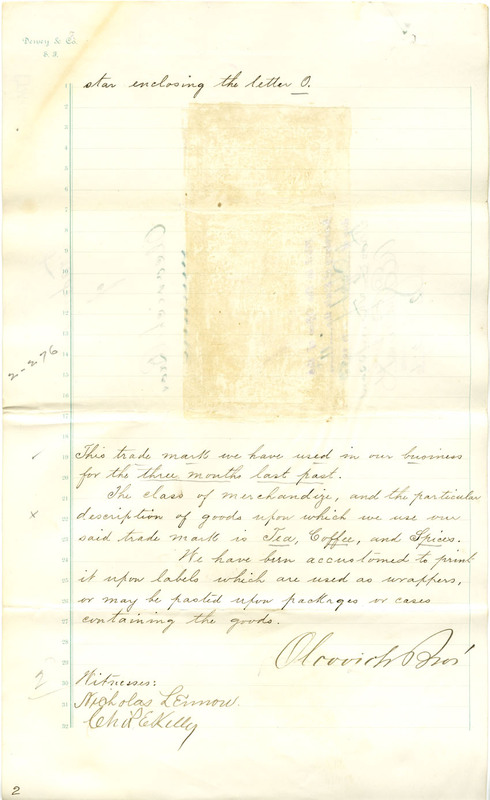 Dewey & Co.
S. F.
1
star enclosing the letter O.
2-276
This trade mark we have used in our business
for the three months last past.
The class of merchandize, and the particular
description of goods upon which we use our
said trade mark is Tea, Coffee, and Spices.
We have been accustomed to print
it upon labels which are used as wrappers,
or may be pasted upon packages or cases
containing the goods.
Olcovich Bros
Witnesses:
Nicholas
Kelly
2